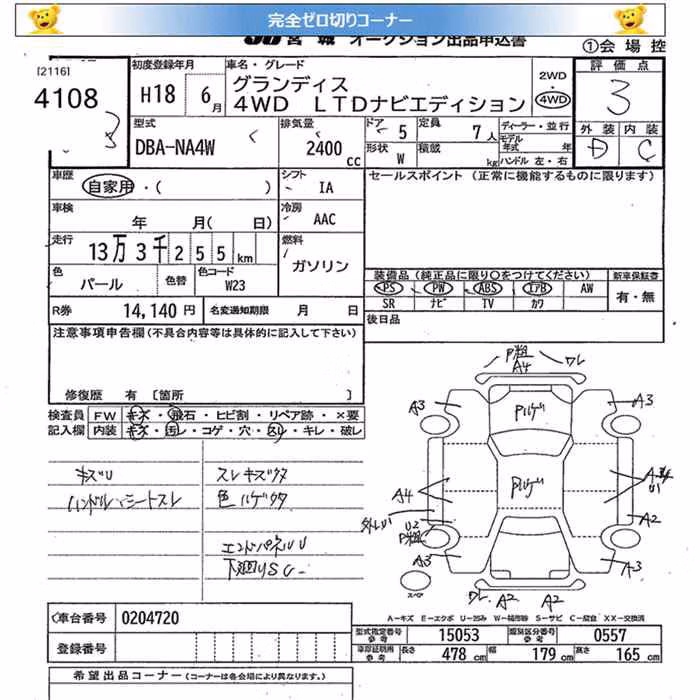 完全ゼロ切りコーナー
JU 宮城 オークション出品申込書
①会場控
[2116]
4108
3
初度登録年月
H18 6月
車名・グレード
グランディス
4WD LTDナビエディション
2WD
4WD
評価点
3
外装 内装
D C
型式
DBA-NA4W
排気量
2400 cc
ドア 5
形状 W
定員 7人
積載 kg
ディーラー・並行
モデル年式 年
ハンドル 左・右
車歴
自家用・( )
シフト
IA
セールスポイント (正常に機能するものに限ります)
車検
年 月(日)
冷房
AAC
走行
13万3千255km
燃料
ガソリン
色
パール
色替
色コード
W23
装備品(純正品に限り〇をつけてください)
PS PW ABS エアB AW
SR ナビ TV カワ
新車保証書
有・無
R券 14,140円
名変通知期限 月 日
後日品
注意事項申告欄(不具合内容等は具体的に記入して下さい)
修復歴 有 [箇所 ]
検査員記入欄
FW キズ・飛石・ヒビ割・リペア跡・×要
内装 キズ・汚レ・コゲ・穴・凹レ・キレ・破レ
キズU
ハンドル・シートスレ
スレキズクタ
色ハゲクタ
エンドパネルU
下廻りSC
P粗
A4
ワレ
A3
A3
Pハゲ
Pハゲ
A4
A2
U2
P粗
A3
A3
ワレ A2 A2
スペア
A-キズ E-エクボ U-凹み W-補修跡 S-サビ C-腐食 XX-交換済
車台番号 0204720
登録番号
型式指定番号 参考 15053
類別区分番号 参考 0557
車庫証明 参考
長さ 478 cm
幅 179 cm
高さ 165 cm
希望出品コーナー(コーナーは各会場により異なります。)